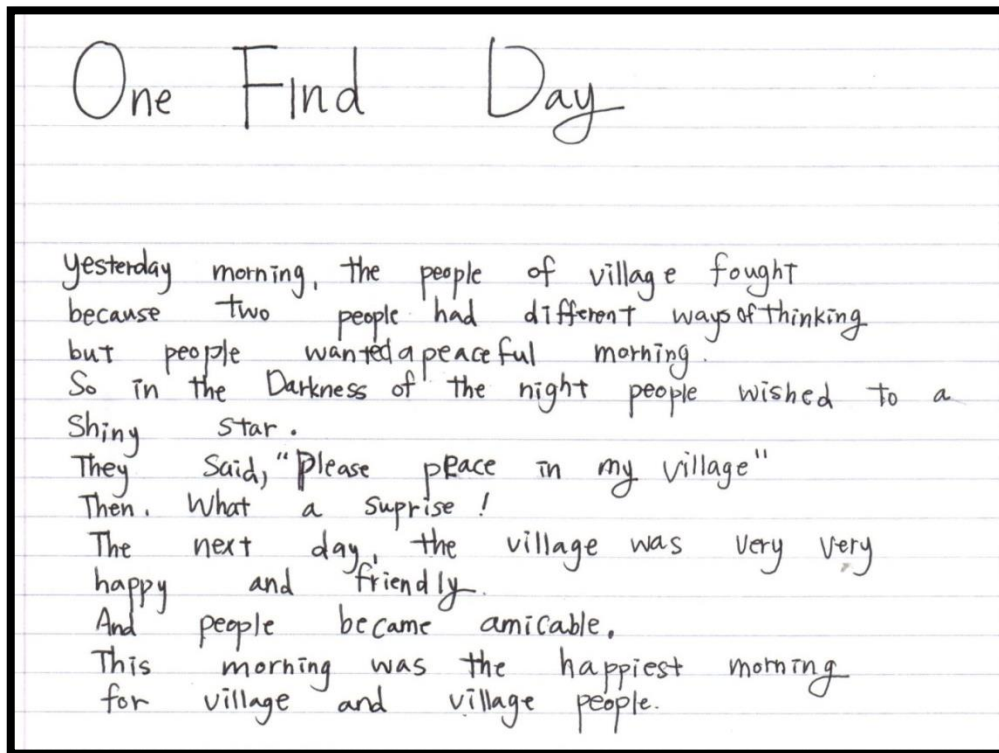 One Find Day
yesterday morning, the people of village fought
because two people had different ways of thinking
but people wanted a peaceful morning.
So in the Darkness of the night people wished to a
Shiny star.
They Said, "Please peace in my village"
Then. What a suprise !
The next day, the village was very very
happy and friendly.
And people became amicable.
This morning was the happiest morning
for village and village people.